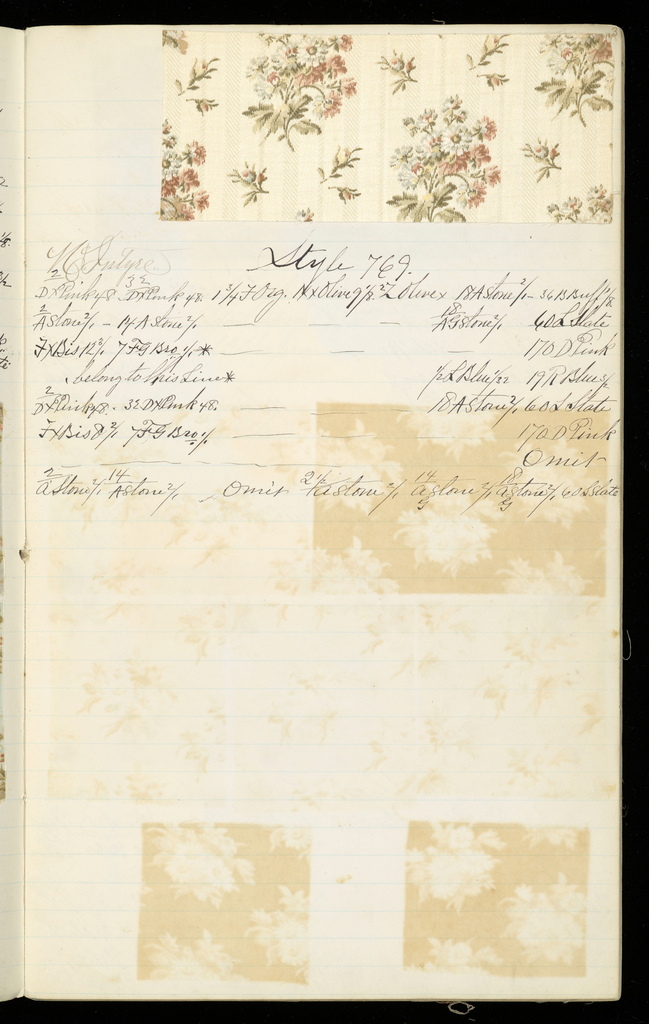 McIntyre. Style 769.
2 DxPink 48. 32 DxPink 48. 1 3/4 F Org. Olive 2 Z Olive x 18 A Stone 2/1 - 36 B Buff
2 A Stone 2/1 - 14 A Stone 2/1 — — — 18 A G Stone 2/1 60 L Slate
FxBis 12 2/1 7 F G Bro 1/1 * — — — 170 D Pink
belong to this Line * 1/2 L Blue 1/32 19 R Blue
2 DxPink 48. 32 DxPink 48. — — 18 A Stone 2/1 60 L Slate
FxBis 8 2/1 7 F G Bro 1/1 — — — 170 D Pink
Omit
2 A Stone 2/1 14 A Stone 2/1 Omit Stone 2/1 14 A G Stone 2/1 18 A G Stone 2/1 60 L Slate